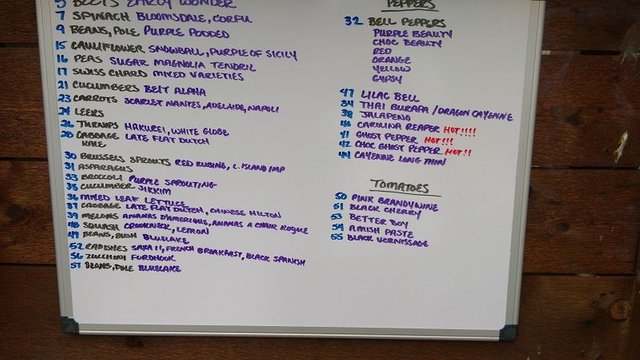 5 BEETS EARLY WONDER
7 SPINACH BLOOMSDALE, CORFU
9 BEANS, POLE PURPLE PODDED
15 CAULIFLOWER SNOWBALL, PURPLE OF SICILY
16 PEAS SUGAR MAGNOLIA TENDRIL
17 SWISS CHARD MIXED VARIETIES
21 CUCUMBERS BEIT ALPHA
23 CARROTS SCARLET NANTES, ADELAIDE, NAPOLI
24 LEEKS
26 TURNIPS HAKUREI, WHITE GLOBE
20 CABBAGE LATE FLAT DUTCH
KALE
30 BRUSSELS SPROUTS RED RUBINE, L. ISLAND IMP
31 ASPARAGUS
33 BROCCOLI PURPLE SPROUTING
35 CUCUMBER SIKKIM
36 MIXED LEAF LETTUCE
37 CABBAGE LATE FLAT DUTCH, CHINESE HILTON
39 MELONS ANANAS D'AMERIQUE, ANANAS A CHAIR ROGUE
40 SQUASH CROOKNECK, LEMON
49 BEANS, BUSH BLUELAKE
52 RADISHES SAXA II, FRENCH BREAKFAST, BLACK SPANISH
56 ZUCCHINI FORDHOOK
57 BEANS, POLE BLUELAKE
PEPPERS
32 BELL PEPPERS
PURPLE BEAUTY
CHOC BEAUTY
RED
ORANGE
YELLOW
GYPSY
47 LILAC BELL
34 THAI BURAPA / DRAGON CAYENNE
38 JALAPENO
46 CAROLINA REAPER HOT!!!!
41 GHOST PEPPER HOT!!!
42 CHOC GHOST PEPPER HOT!!
44 CAYENNE LONG THIN
TOMATOES
50 PINK BRANDYWINE
51 BLACK CHERRY
53 BETTER BOY
54 AMISH PASTE
55 BLACK VERNISSAGE